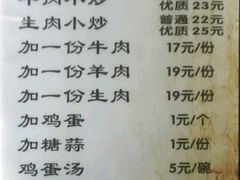 优质 23元
生肉小炒 普通 22元
优质 25元
加一份牛肉 17元/份
加一份羊肉 19元/份
加一份生肉 19元/份
加鸡蛋 1元/个
加糖蒜 1元/份
鸡蛋汤 5元/碗